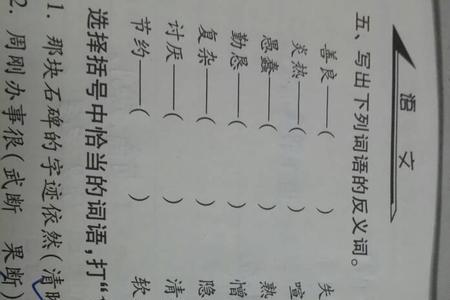 语文
五、写出下列词语的反义词。
善良——(    ) 失
炎热——(    ) 喧
愚蠢——(    ) 熟
勤恳——(    ) 憎
复杂——(    ) 隐
讨厌——(    ) 清
节约——(    ) 软
选择括号中恰当的词语,打“
1. 那块石碑的字迹依然(清
2. 周刚办事很(武断 果断)